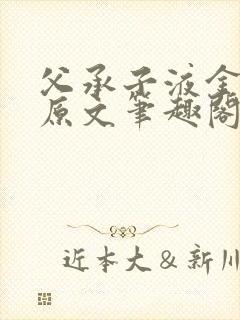 父承子液全
原文笔趣阁
近本大＆新川